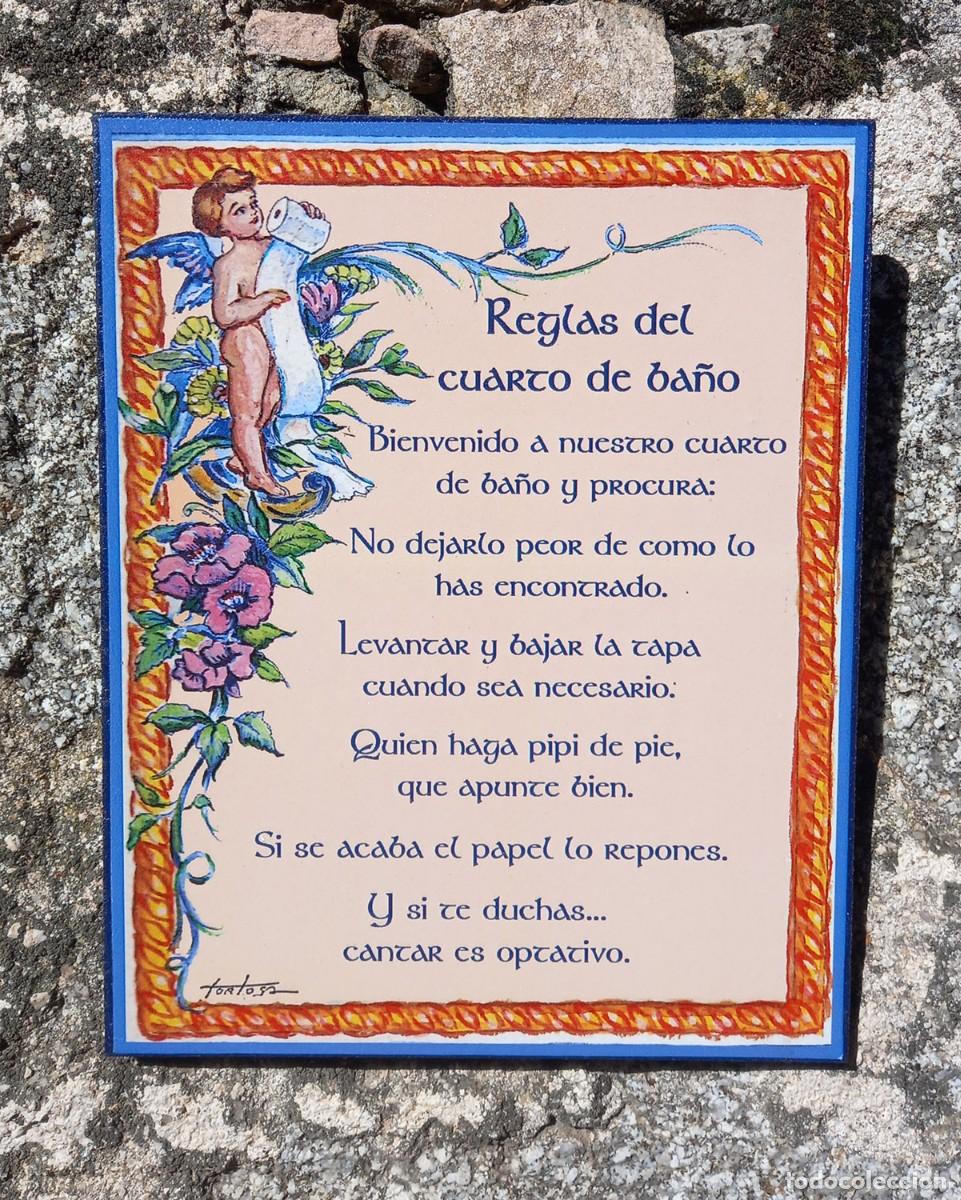 Reglas del
cuarto de baño
Bienvenido a nuestro cuarto
de baño y procura:
No dejarlo peor de como lo
has encontrado.
Levantar y bajar la tapa
cuando sea necesario.
Quien haga pipi de pie,
que apunte bien.
Si se acaba el papel lo repones.
Y si te duchas...
cantar es optativo.
tortosa
todocoleccion